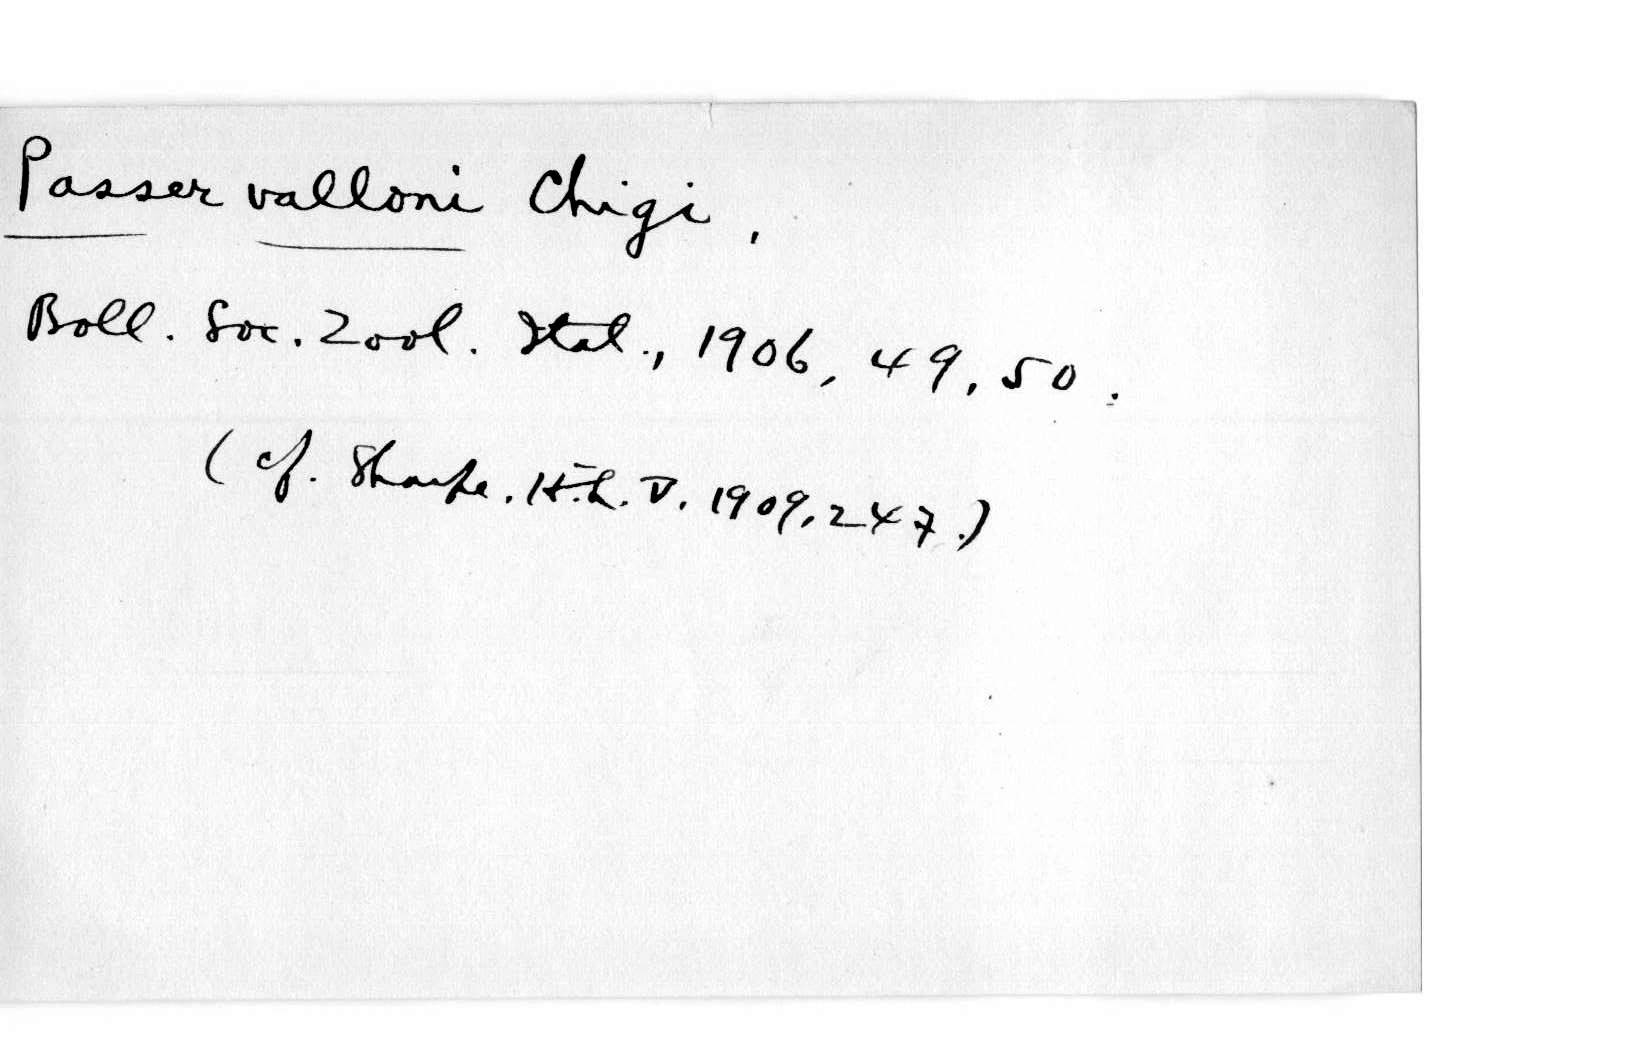 Passer valloni Chigi,
Boll. Soc. Zool. Ital., 1906, 49, 50.
(cf. Sharpe. H.L. V. 1909, 247.)